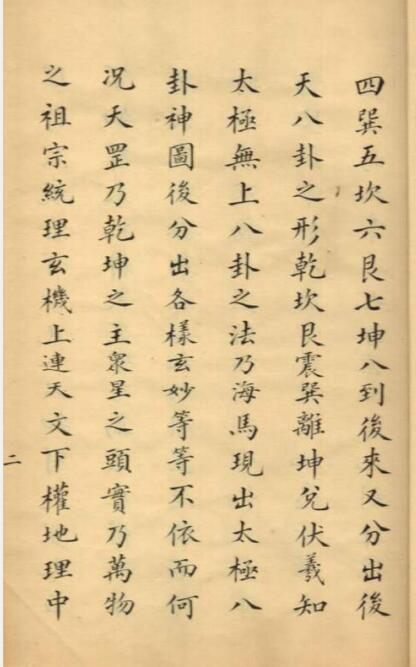 四巽五坎六艮七坤八到後來又分出後
天八卦之形乾坎艮震巽離坤兌伏羲知
太極無上八卦之法乃海馬現出太極八
卦神圖後分出各樣玄妙等等不依而何
况天罡乃乾坤之主衆星之頭實乃萬物
之祖宗統理玄機上連天文下權地理中
二